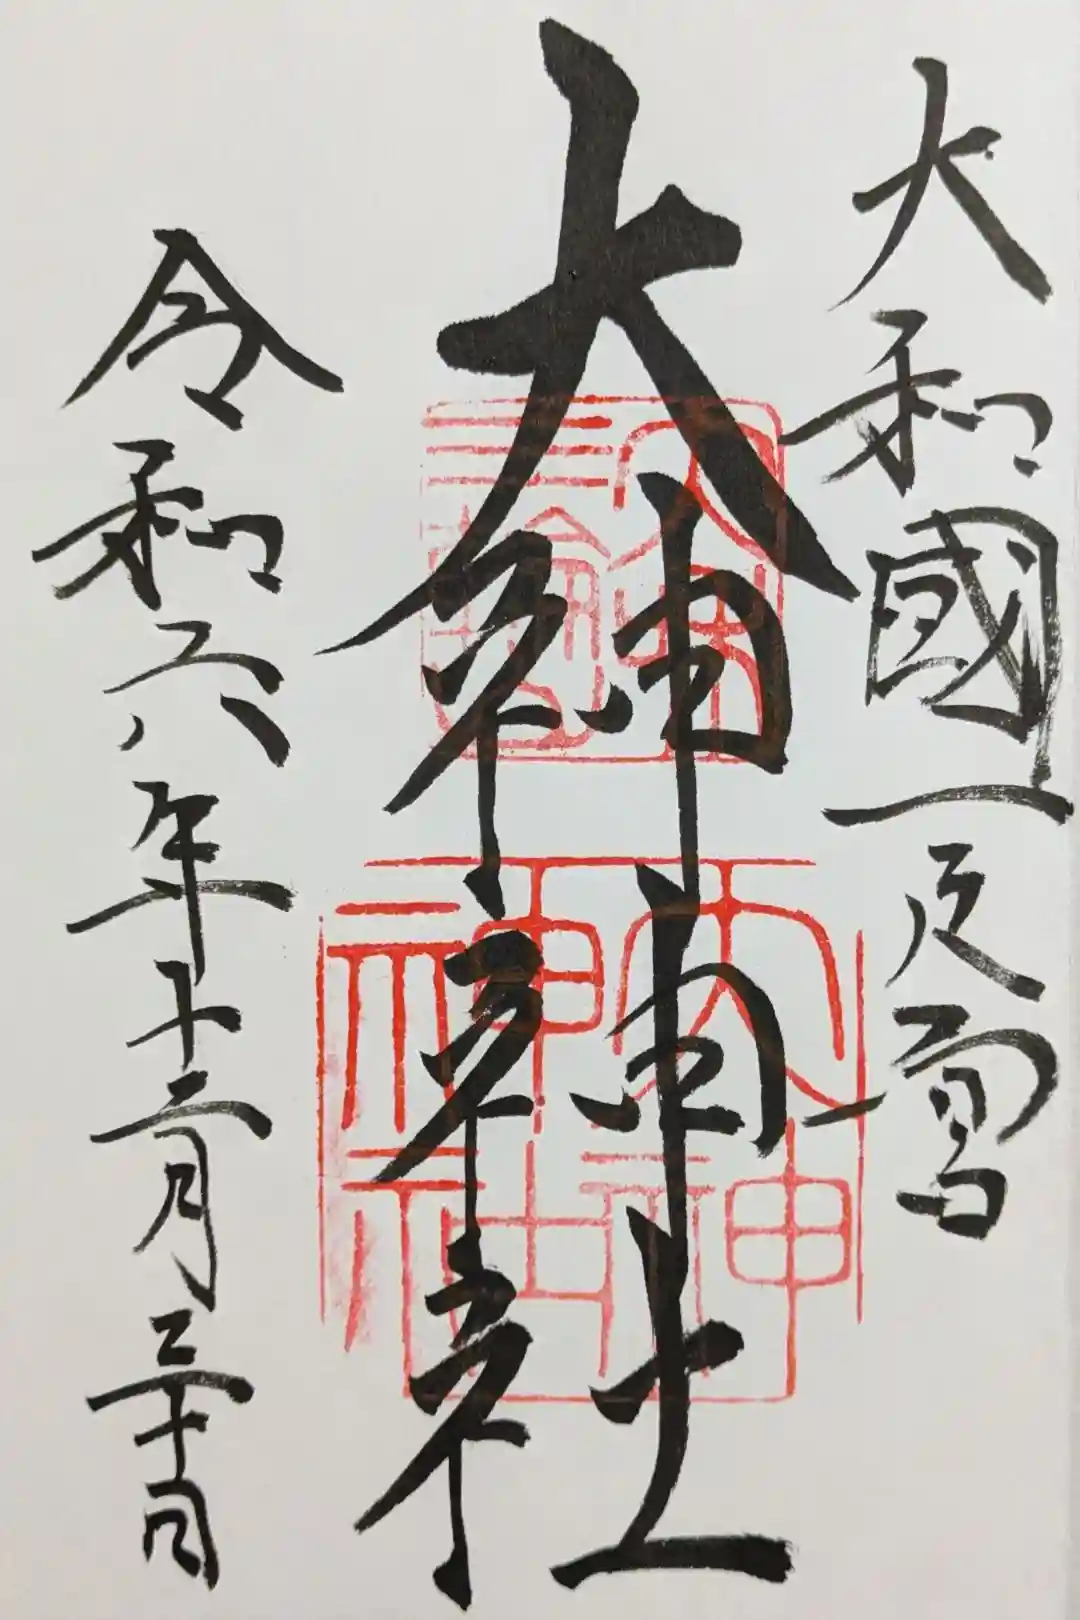 大和國一之宮
大神神社
令和六年十二月三十日
大神
神社